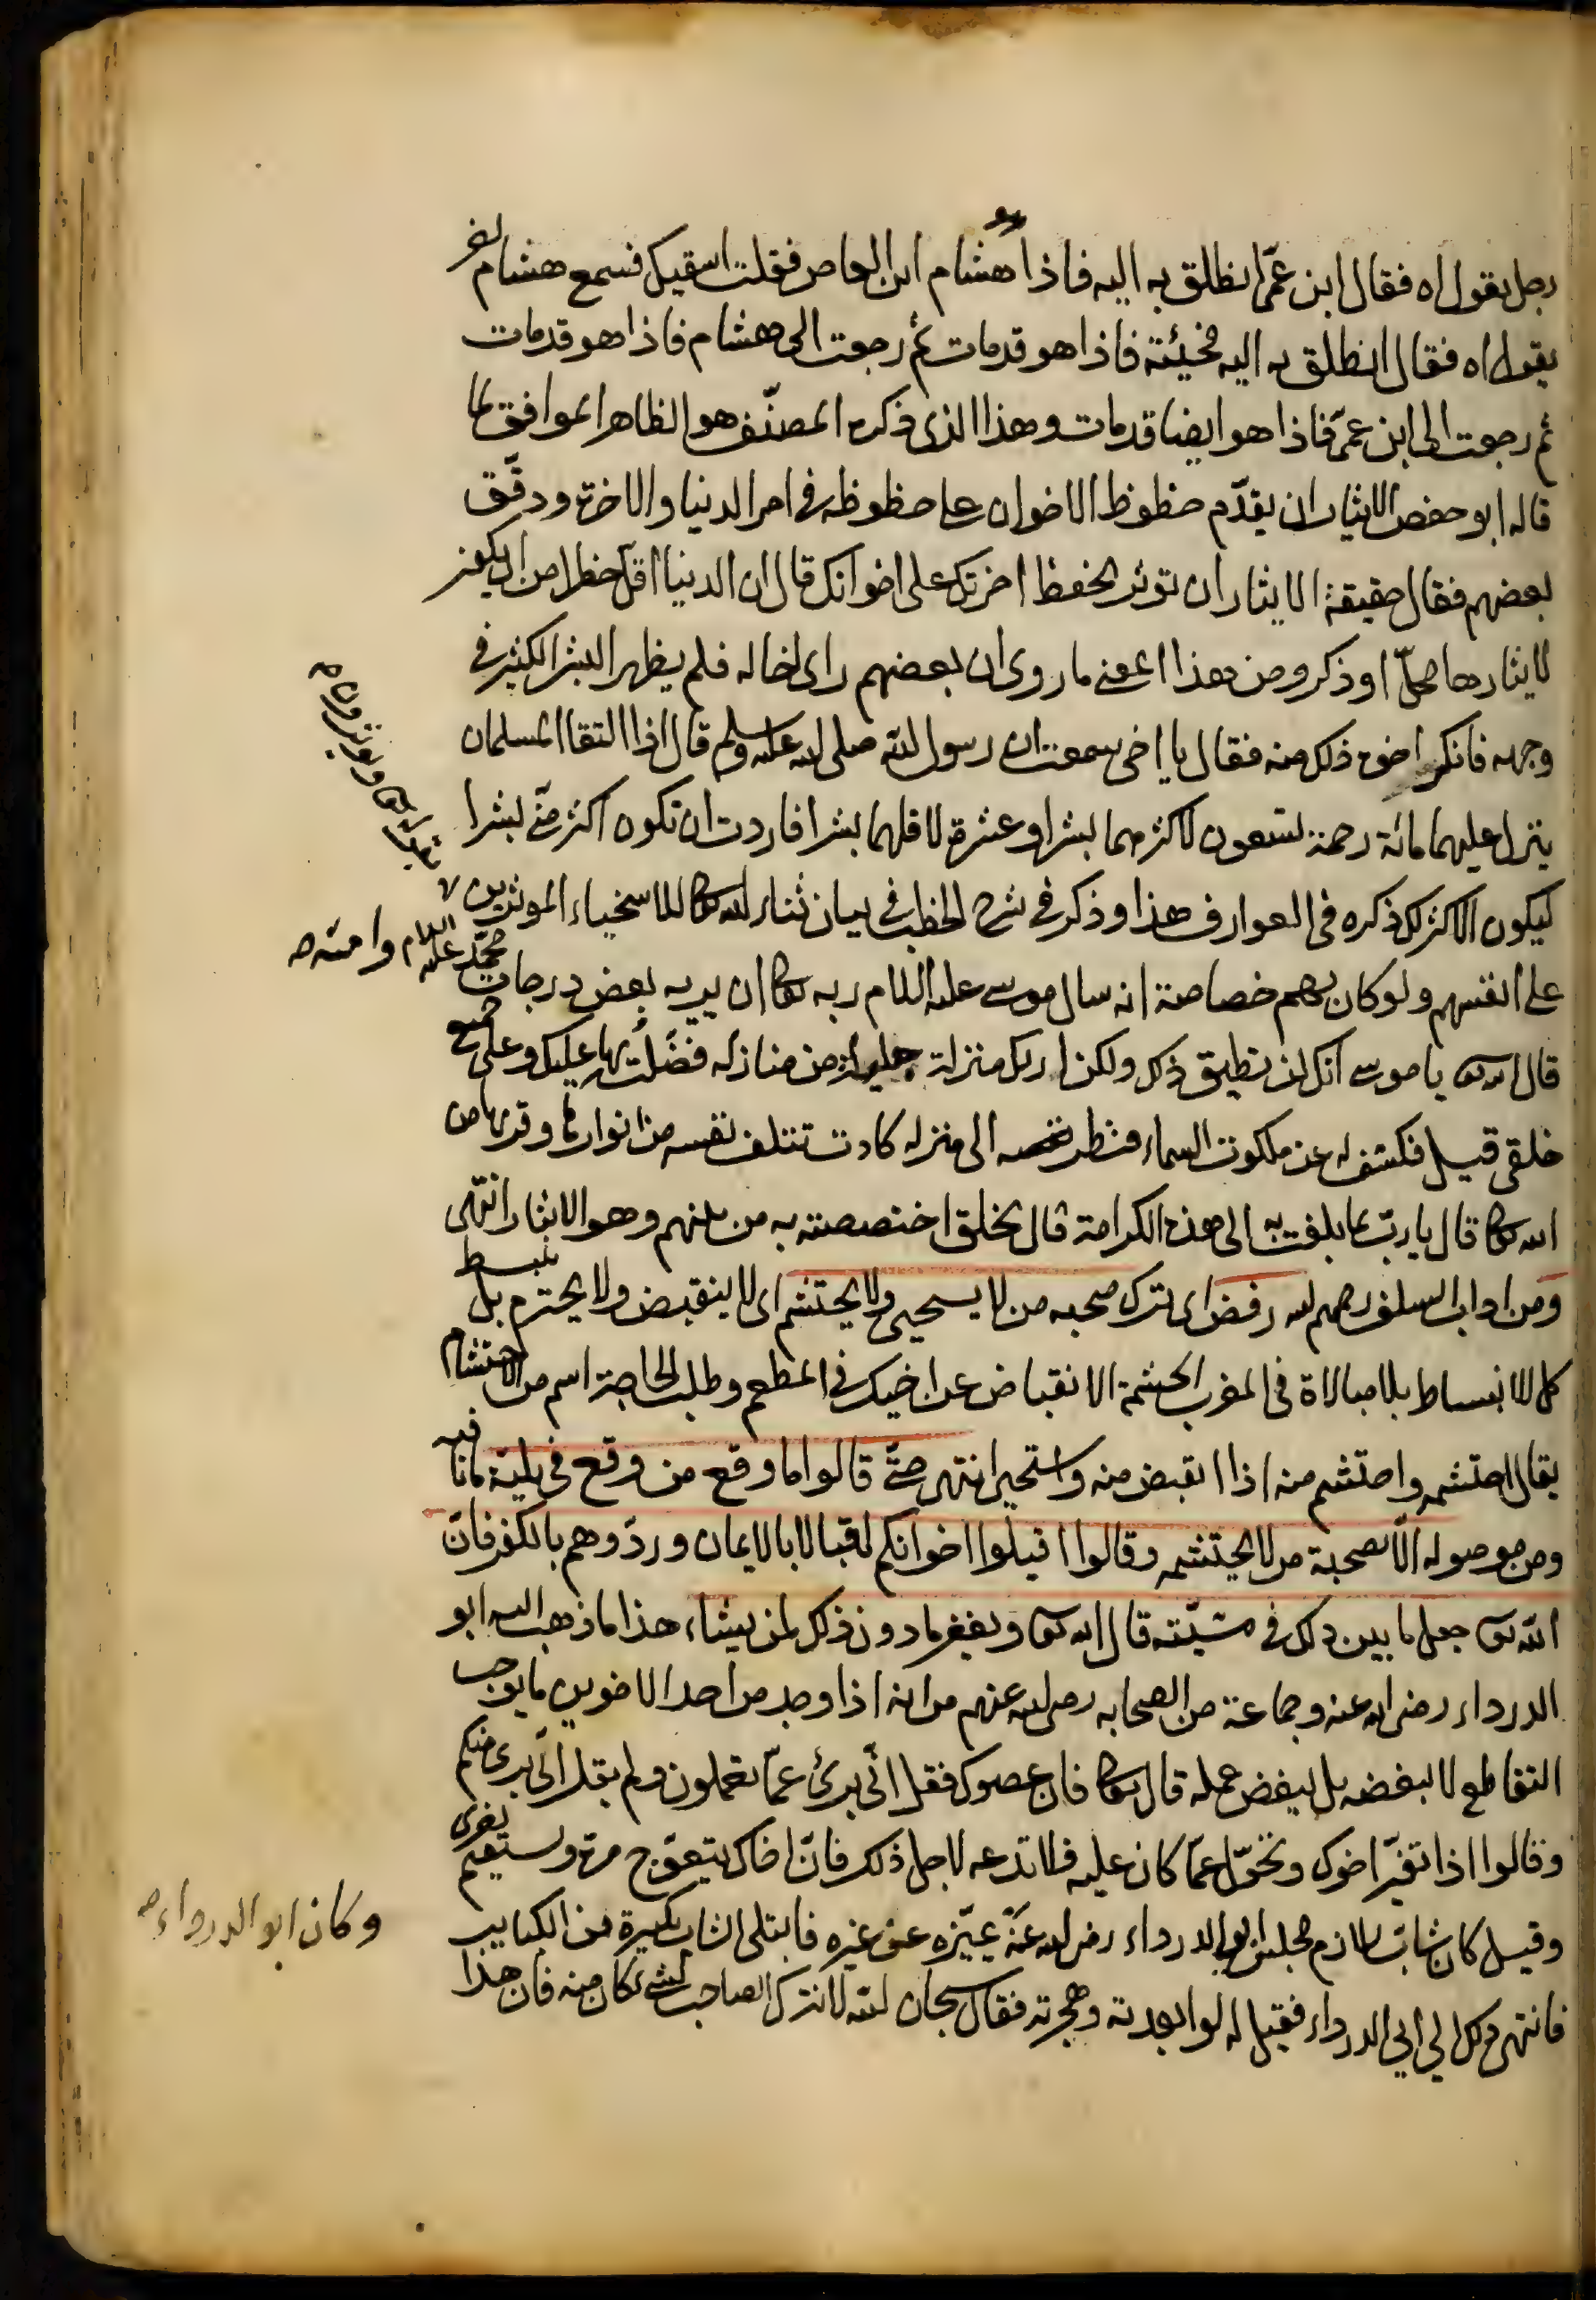 رجل يقول اه فقال ابن عمّى انطلق به اليه فاذا هو هشام ابن العاص فقلت اسقيك فسمع هشام اخر
يقول اه فقال انطلق به اليه فجئته فاذا هو قد مات ثم رجعت الى هشام فاذا هو قد مات
ثم رجعت الى ابن عمّى فاذا هو ايضا قد مات وهذا الذى ذكره المصنّف هو الظاهر الموافق لما
قاله ابو حفص الايثار ان يقدّم حظوظ الاخوان على حظوظه فى امر الدنيا والاخرة ودقّق
بعضهم فقال حقيقة الايثار ان توثر بحفظ اخرتك على اخوانك قال ان الدنيا اقلّ خطرا من ان يكون
لايثارها محلّ او ذكر ومن هذا المعنى ما روى ان بعضهم راى اخا له فلم يظهر البشر الكثير فى
وجهه فانكر اخوه ذلك منه فقال يا اخى سمعت ان رسول الله صلى الله عليه وسلم قال اذا التقا المسلمان
ينزل عليهما مائة رحمة تسعون لاكثرهما بشرا وعشرة لاقلهما بشرا فاردت ان تكون اكثر منّى بشرا
ليكون الاكثر لك ذكره فى العوارف هذا وذكر فى شرح الخطب فى بيان ثناء الله تعالى للاسخياء الموثرين
على انفسهم ولو كان بهم خصاصة انه سال موسى عليه السلام ربه تعالى ان يريه بعض درجات
محمّد عليه السلام وامته صح
قال الله تعالى يا موسى انك لن تطيق ذلك ولكن اريك منزلة جليلة من منازله فضّلت بها عليك وعلى جميع
خلقى قيل فكشف له عن ملكوت السماء فنظر الى منزله كادت تتلف نفسه من انوارها وقربها من
الله تعالى قال يا ربّ بما بلغت به الى هذه الكرامة قال بخلق اختصصته به من بينهم وهو الايثار انتهى
ومن اداب السلف رحمهم الله رفض اى ترك صحبه من لا يستحيى ولا يحتشم اى لا ينقبض ولا يحترم بل ينبسط
كل الانبساط بلا مبالاة فى المغرب الحشمة الانقباض عن اخيك فى المطعم وطلب الحاجة اسم من الاحتشام
يقال احتشمه واحتشم منه اذا انقبض منه واستحيى انتهى حتّى قالوا ما وقع من وقع فى بليّة ما نافيه
ومن موصوله الّا بصحبة من لا يحتشمه وقالوا اقبلوا اخوانكم اقبالا بالايمان وردّوهم بالكفر فانّ
الله تعالى جعل ما بين ذلك فى مشيّته قال الله تعالى ويغفر ما دون ذلك لمن يشاء هذا ما ذهب اليه ابو
الدرداء رضى الله عنه وجماعة من الصحابه رضى الله عنهم من انه اذا وجد من احد الاخوين ما يوجب
التقاطع لا يبغضه بل يبغض عمله قال تعالى فان عصوك فقل انّى برئ عمّا تعملون ولم يقل انّى برئ منكم
وقالوا اذا تغيّر اخوك وتحوّل عمّا كان عليه فلا تدعه لاجل ذلك فانّ اخاك يتعوّج مرة ويستقيم اخرى
وقيل كان شابّ يلازم مجلس ابى الدرداء رضى الله عنه يميّزه عن غيره فابتلى الشاب بكبيرة من الكباير
وكان ابو الدرداء صح
فانتهى ذلك الى ابى الدرداء فقيل له لو ابعدته وهجرته فقال سبحان الله لا نترك الصاحب لشئ كان منه فان هذا